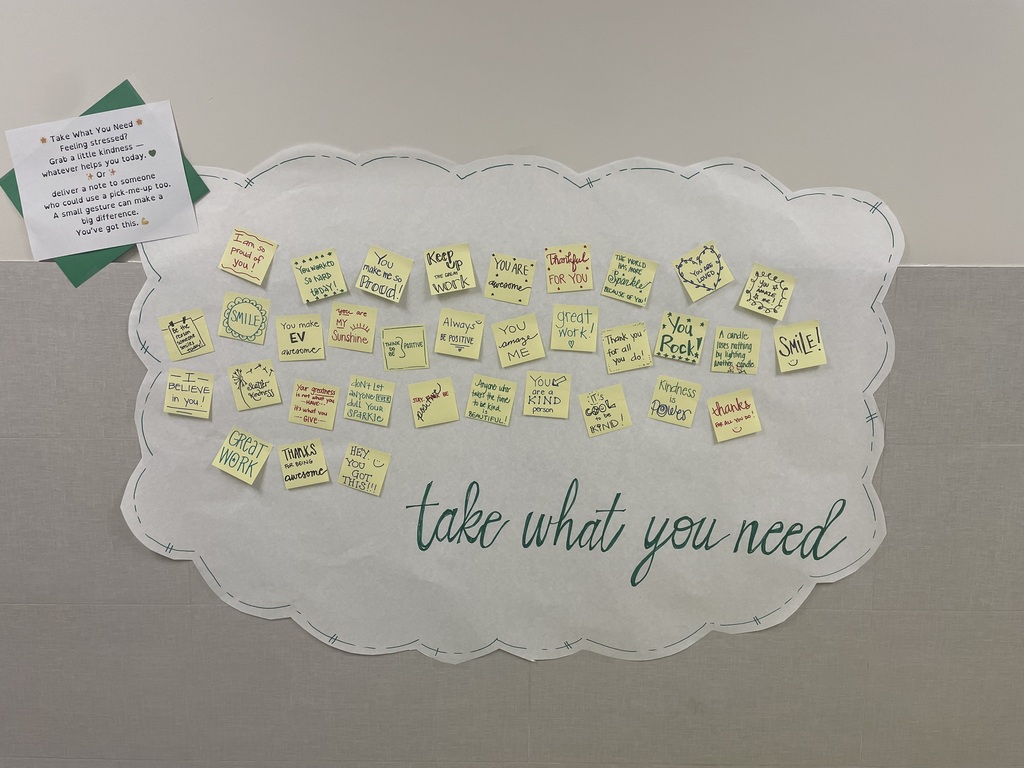 Take What You Need
Feeling stressed?
Grab a little kindness —
whatever helps you today.
Or
deliver a note to someone
who could use a pick-me-up too.
A small gesture can make a
big difference.
You've got this.
I am so
proud of
you!
YOU WORKED
SO HARD
TODAY!
You
make me so
Proud!
Keep
up
THE GREAT
work
YOU ARE
awesome
Thankful
FOR YOU
THE WORLD
HAS MORE
Sparkle
BECAUSE OF YOU!
YOU ARE
LOVED
YOU
AMAZE
ME!
Be the
reason
someone
smiles
today!
SMILE!
YOU make
EV
awesome
you are
MY
Sunshine
THINK
POSITIVE
Always
BE POSITIVE
YOU
amaze
ME
great
work!
Thank you
for all
you do!
You
Rock!
A candle
loses nothing
by lighting
another candle
SMILE!
I
BELIEVE
in you!
Scatter
kindness
Your greatness
is not what you
HAVE
It's what you
Give
don't let
anyone EVER
dull your
SPARKLE
Anyone who
takes the time
to be kind
is
BEAUTIFUL!
YOU
are a
KIND
person
IT'S
COOL
TO BE
KIND!
Kindness
is
Power
thanks
FOR ALL YOU DO!
GREAT
WORK
THANKS
FOR BEING
awesome
HEY
YOU
GOT
THIS!!!
take what you need